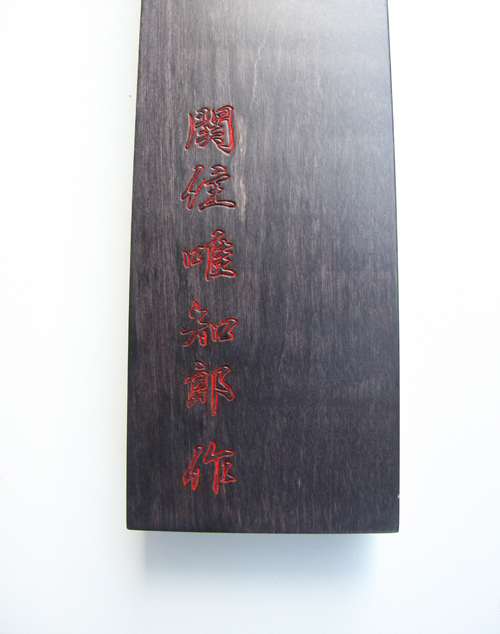 関佳唯知郎作